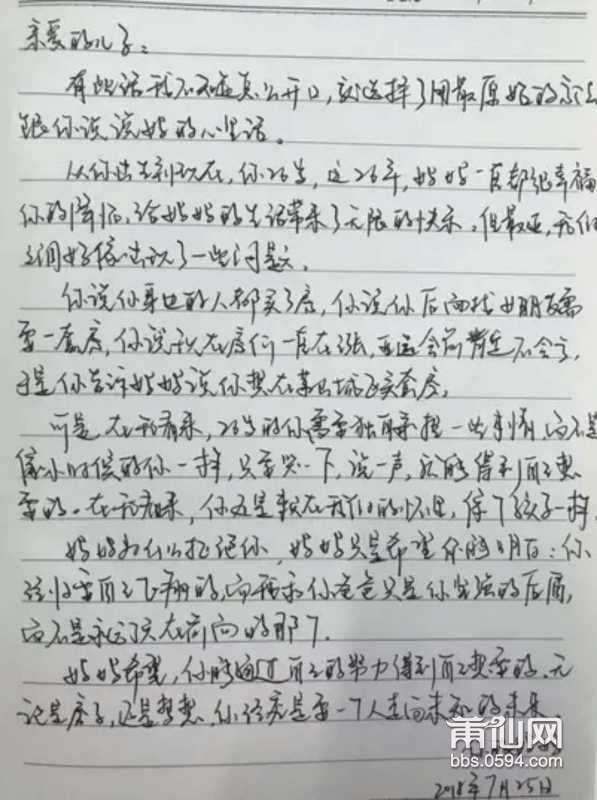 亲爱的儿子：
有些话我不知道怎么开口，就选择了用最原始的方法
跟你说说妈妈的心里话。
从你出生到现在，你26岁，这26年，妈妈一直都很幸福
你的降临，给妈妈的生活带来了无限的快乐。但最近，我们
之间好像出现了一些问题。
你说你身边的人都买了房，你说你后面找女朋友需
要一套房，你说现在房价一直在涨，
于是你告诉妈妈说你想在莆田城区买套房。
可是在我看来，26岁的你需要独自承担一些事情，而不是
像小时候的你一样，只要哭一下，说一声，就能得到自己想
要的。在我看来，你还是躲在我们的怀里，像个孩子一样。
妈妈为什么拒绝你，妈妈只是希望你能明白：你
该是要自己飞翔的，而我和你爸爸只是你坚强的后盾，
而不是永远顶在前面的那个。
妈妈希望，你能通过自己的努力得到自己想要的，无
论是房子，还是梦想，你终究是要一个人走向未知的未来
2018年7月25日
莆仙网
bbs.0594.com